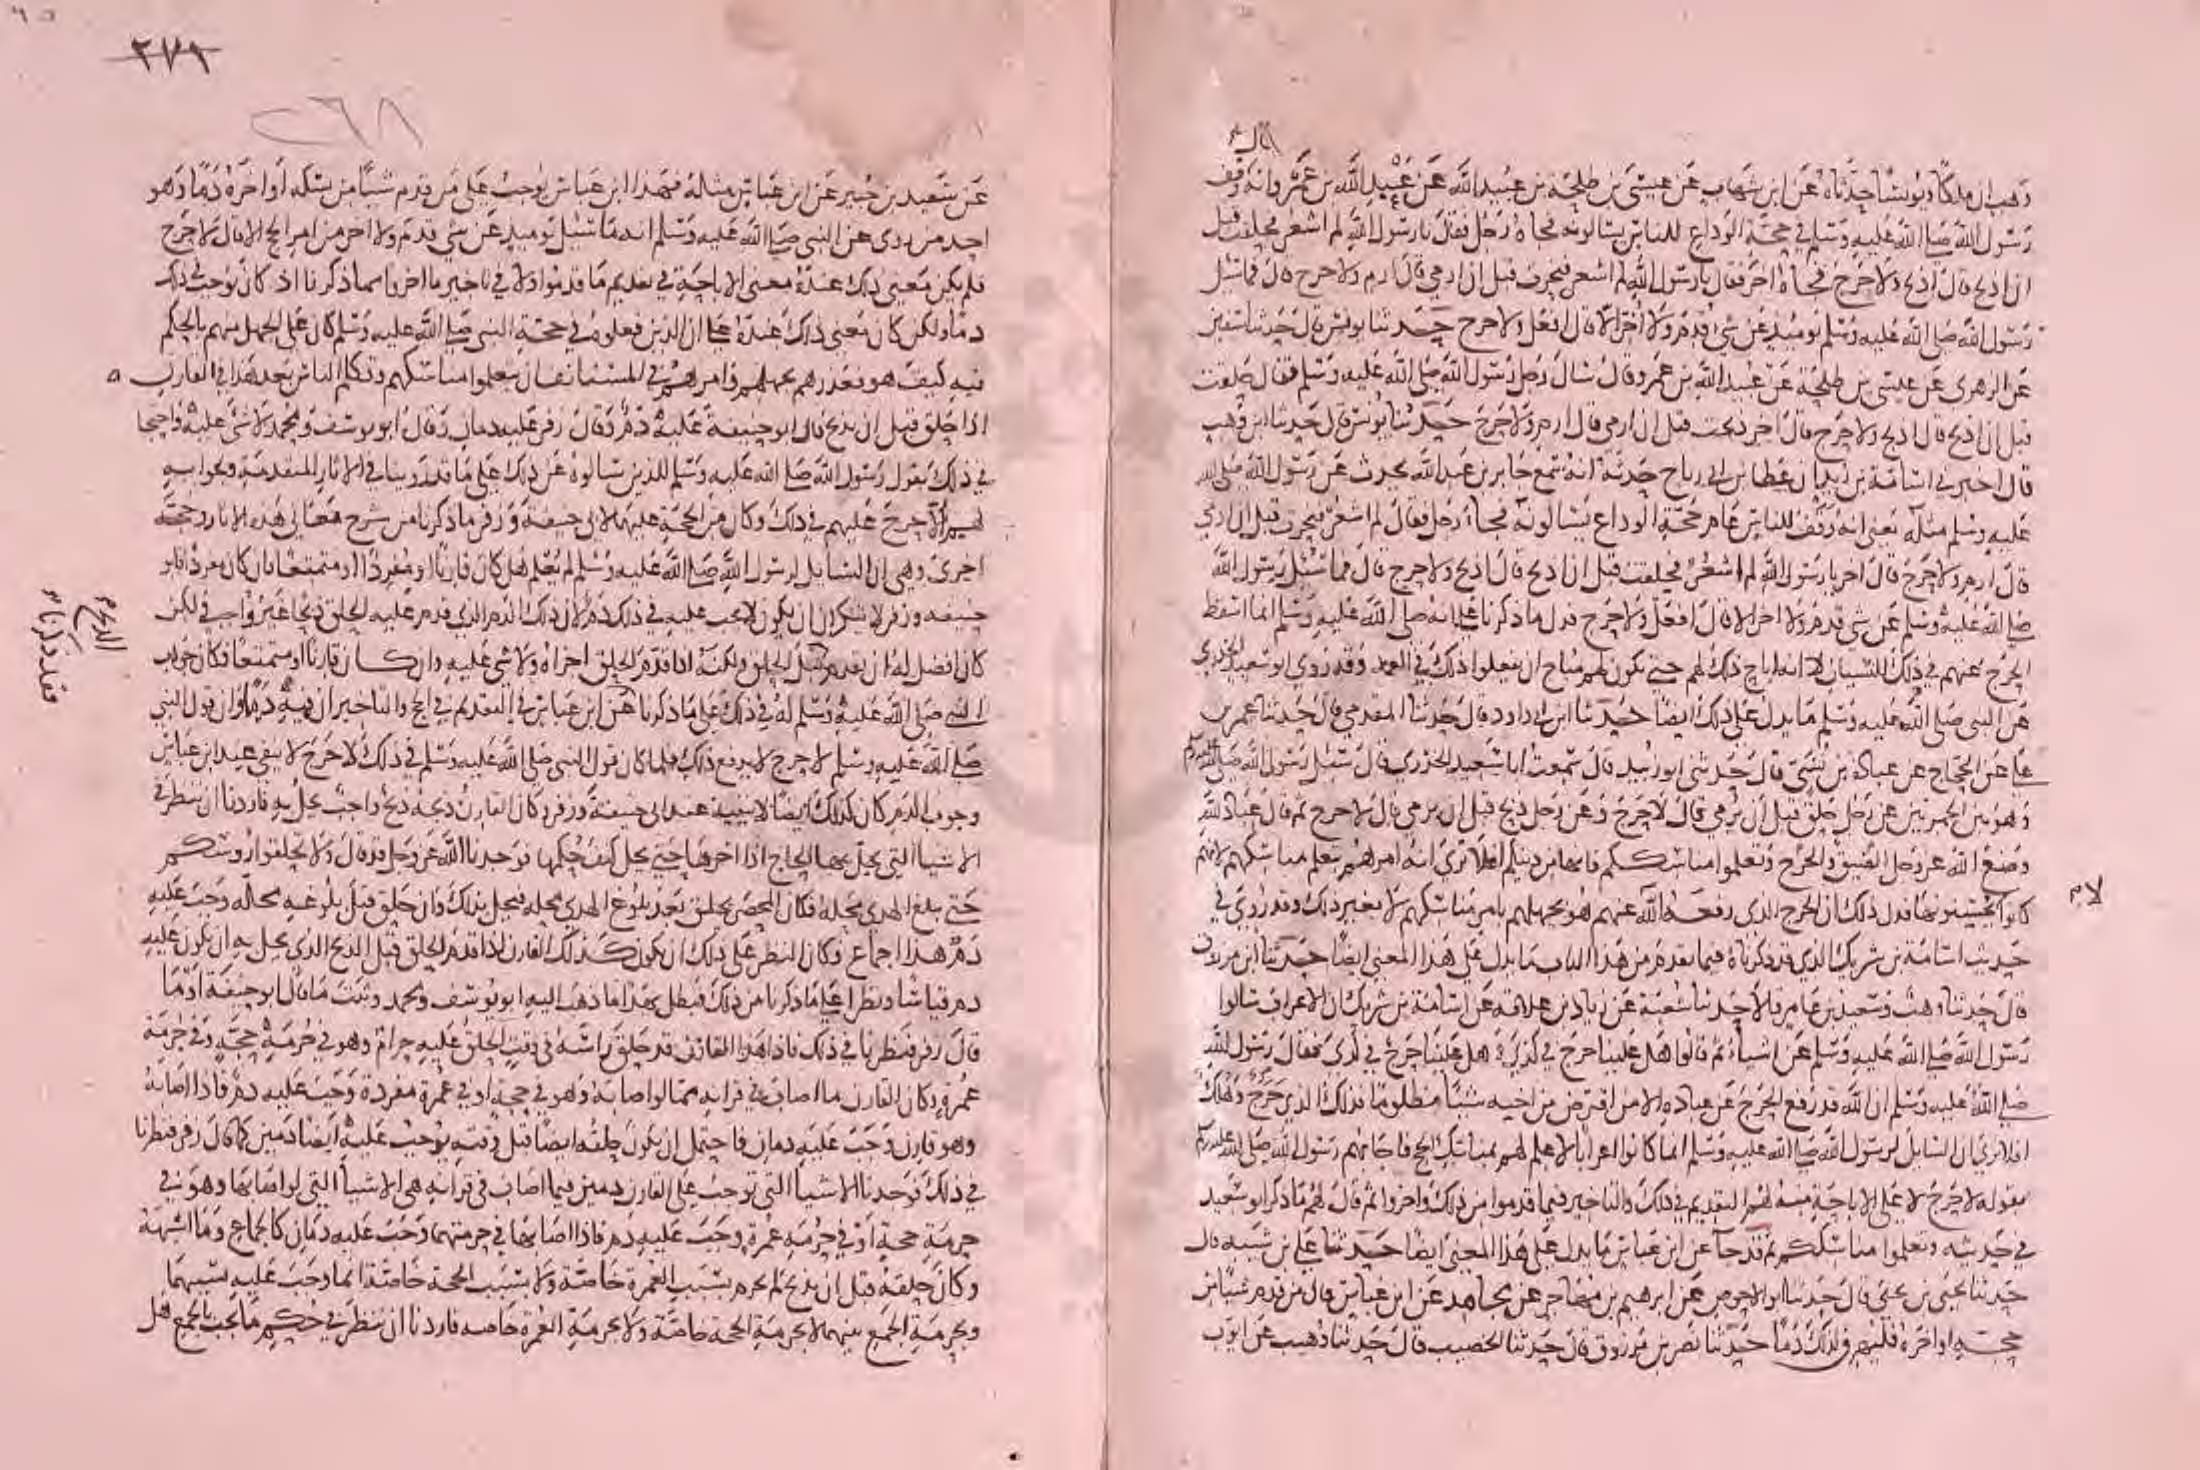 قال
وهب ان ملكا ويونسا حدثاه عن ابن شهاب عن عيسى بن طلحة بن عبيد الله عن عبيد الله بن عمرو انه وقف
رسول الله صلى الله عليه وسلم في حجة الوداع للناس يسالونه فجاه رجل فقال يا رسول الله لم اشعر فحلقت قبل
ان اذبح قال اذبح ولا حرج فجاه اخر فقال يا رسول الله لم اشعر فنحرت قبل ان ارمي قال ارم ولا حرج قال فما سئل
رسول الله صلى الله عليه وسلم يوميذ عن شي قدم ولا اخر الا قال افعل ولا حرج حدثنا يونس قال حدثنا سفين
عن الزهرى عن عيسى بن طلحة عن عبد الله بن عمرو قال سال رجل رسول الله صلى الله عليه وسلم فقال حلقت
قبل ان اذبح قال اذبح ولا حرج قال اخر ذبحت قبل ان ارمي قال ارم ولا حرج حدثنا يونس قال حدثنا ابن وهب
قال اخبرني اسامة بن زيد ان عطا بن ابي رباح حدثه انه سمع جابر بن عبد الله يحدث عن رسول الله صلى الله
عليه وسلم مثله يعني انه وقف للناس عام حجة الوداع يسالونه فجاء رجل فقال لم اشعر فنحرت قبل ان ارمي
قال ارم ولا حرج قال اخر يا رسول الله لم اشعر فحلقت قبل ان اذبح قال اذبح ولا حرج قال فما سئل رسول الله
صلى الله عليه وسلم عن شي قدم ولا اخر الا قال افعل ولا حرج فدل ما ذكرنا على انه صلى الله عليه وسلم انما اسقط
الحرج عنهم في ذلك للنسيان لا انه اباح ذلك لهم حتى يكون لهم مباح ان يفعلوا ذلك في العمد وقد روي ابو سعيد الخدري
عن النبي صلى الله عليه وسلم ما يدل على ذلك ايضا حدثنا ابن ابي داود قال حدثنا المقدمي قال حدثنا عمر بن
على عن الحجاج عن عبادة بن نسي قال حدثني ابو زبيد قال سمعت ابا سعيد الخدري قال سئل رسول الله صلى الله عليه وسلم
وهو بين الجمرتين عن رجل حلق قبل ان يرمي قال لا حرج وعن رجل ذبح قبل ان يرمي قال لا حرج ثم قال عباد الله
وضع الله عز وجل الضيق والحرج وتعلموا مناسككم فانها من دينكم افلا ترى انه امرهم بتعلم مناسكهم لانهم
لام
كانوا لا يحسنونها فدل ذلك ان الحرج الذي رفعه الله عنهم هو لجهلهم بامر مناسكهم لا لغير ذلك وقد روي في
حديث اسامة بن شريك الذي قد ذكرناه فيما تقدم من هذا الباب ما يدل على هذا المعنى ايضا حدثنا ابن مرزوق
قال حدثنا وهب وسعيد بن عامر قالا حدثنا شعبة عن زياد بن علاقة عن اسامة بن شريك ان الاعراب سالوا
رسول الله صلى الله عليه وسلم عن اشياء ثم قالوا هل علينا حرج في كذى وهل علينا حرج في كذى فقال رسول الله
صلى الله عليه وسلم ان الله قد رفع الحرج عن عباده الا من اقترض من اخيه شيئا مظلوما فذلك الذي حرج وهلك
افلا ترى ان السائل لرسول الله صلى الله عليه وسلم انما كانوا اعرابا لا علم لهم بمناسك الحج فاجابهم رسول الله صلى الله عليه وسلم
بقوله لا حرج لا على الاباحة منه لهم التقديم في ذلك والتاخير فيما قدموا من ذلك واخروا ثم قال لهم ما ذكر ابو سعيد
في حديثه وتعلموا مناسككم ثم قد جآ عن ابن عباس ما يدل على هذا المعنى ايضا حدثنا علي بن شيبه قال
حدثنا يحيى بن يحيى قال حدثنا ابو الاحوص عن ابرهيم بن مهاجر عن مجاهد عن ابن عباس قال من قدم شيئا من
حجه او اخره فليهرق لذلك دما حدثنا نصر بن مرزوق قال حدثنا الخصيب قال حدثنا وهيب عن ايوب
٢٧٩
٢٦٨
عن سعيد بن جبير عن ابن عباس مثله فهذا ابن عباس يوجب على من قدم شيئا من نسكه او اخره دما وهو
احد من روى عن النبي صلى الله عليه وسلم انه ما سئل يوميذ عن شي قدم ولا اخر من امر الحج الا قال لا حرج
فلم يكن معنى ذلك عنده معنى الاباحة في تقديم ما قدموا ولا في تاخير ما اخروا مما ذكرنا اذ كان يوجب في ذلك
دما ولكن كان معنى ذلك عنده على ان الذين فعلوه في حجة النبي صلى الله عليه وسلم كان على الجهل منهم بالحكم
فيه كيف هو فعذرهم بجهلهم وامرهم في المستانف ان يتعلموا مناسكهم وتكلم الناس بعد هذا في القارن
اذا حلق قبل ان يذبح قال ابو حنيفة عليه دم وقال زفر عليه دمان وقال ابو يوسف ومحمد لا شي عليه واحتجا
في ذلك بقول رسول الله صلى الله عليه وسلم للذين سالوه عن ذلك على ما قد روينا في الاثار المتقدمة وبجوابه
لهم الا حرج عليهم في ذلك وكان من الحجة عليهما لابي حنيفة وزفر ما ذكرنا من شرح معاني هذه الاثار وحجة
اخرى وهي ان السايل لرسول الله صلى الله عليه وسلم لم يعلم هل كان قارنا او مفردا او متمتعا فان كان مفردا فابو
حنيفه وزفر لا ينكران ان يكون لا يجب عليه في ذلك دم لان ذلك الدم الذي قدم عليه الحلق ذبح غير واجب ولكن
الذبح
كان افضل له ان يقدم قبل الحلق ولكنه اذا قدم الحلق اجزاه ولا شي عليه وان كان قارنا او متمتعا فكان جواب
فقد ذكرنا
النبي صلى الله عليه وسلم له في ذلك على ما ذكرنا عن ابن عباس في التقديم في الحج والتاخير ان فيه دما وان قول النبي
صلى الله عليه وسلم لا حرج لا يرفع ذلك فلما كان قول النبي صلى الله عليه وسلم في ذلك لا حرج لا ينفي عند ابن عباس
وجوب الدم كان كذلك ايضا لا ينفيه عند ابي حنيفة وزفر وكان القارن ذبحه ذبح واجب يحل به فاردنا ان ننظر في
الاشيا التي يحل بها الحاج اذا اخرها حتى يحل كيف حكمها فوجدنا الله عز وجل قد قال ولا تحلقوا روسكم
حتى يبلغ الهدي محله فكان المحصر يحلق بعد بلوغ الهدي محله فيحل بذلك وان حلق قبل بلوغه محله وجب عليه
دم هذا اجماع وكان النظر على ذلك ان يكون كذلك القارن اذا قدم الحلق قبل الذبح الذي يحل به ان يكون عليه
دم قياسا ونظرا على ما ذكرنا من ذلك فبطل بهذا ما ذهب اليه ابو يوسف ومحمد وثبت ما قال ابو حنيفة او ما
قال زفر فنظرنا في ذلك فاذا هذا القارن قد حلق راسه في وقت الحلق عليه حرام وهو في حرمة حجة وفي حرمة
عمرة وكان القارن ما اصاب في قرانه مما لو اصابه وهو في حجة او في عمرة مفردة وجب عليه دم فاذا اصابه
وهو قارن وجب عليه دمان فاحتمل ان يكون حلقه ايضا قبل وقته يوجب عليه ايضا دمين كما قال زفر فنظرنا
في ذلك فوجدنا الاشيا التي توجب على القارن دمين فيما اصاب في قرانه هي الاشيا التي لو اصابها وهو في
حرمة حجة او في حرمة عمرة وجب عليه دم فاذا اصابها في حرمتهما وجب عليه دمان كالجماع وما اشبهه
وكان حلقه قبل ان يذبح لم يحرم بسبب العمرة خاصة ولا بسبب الحجة خاصة انما وجب عليه بسببهما
وبحرمة الجمع بينهما لا بحرمة الحجة خاصة ولا بحرمة العمرة خاصه فاردنا ان ننظر في حكم ما يجب بالجمع هل